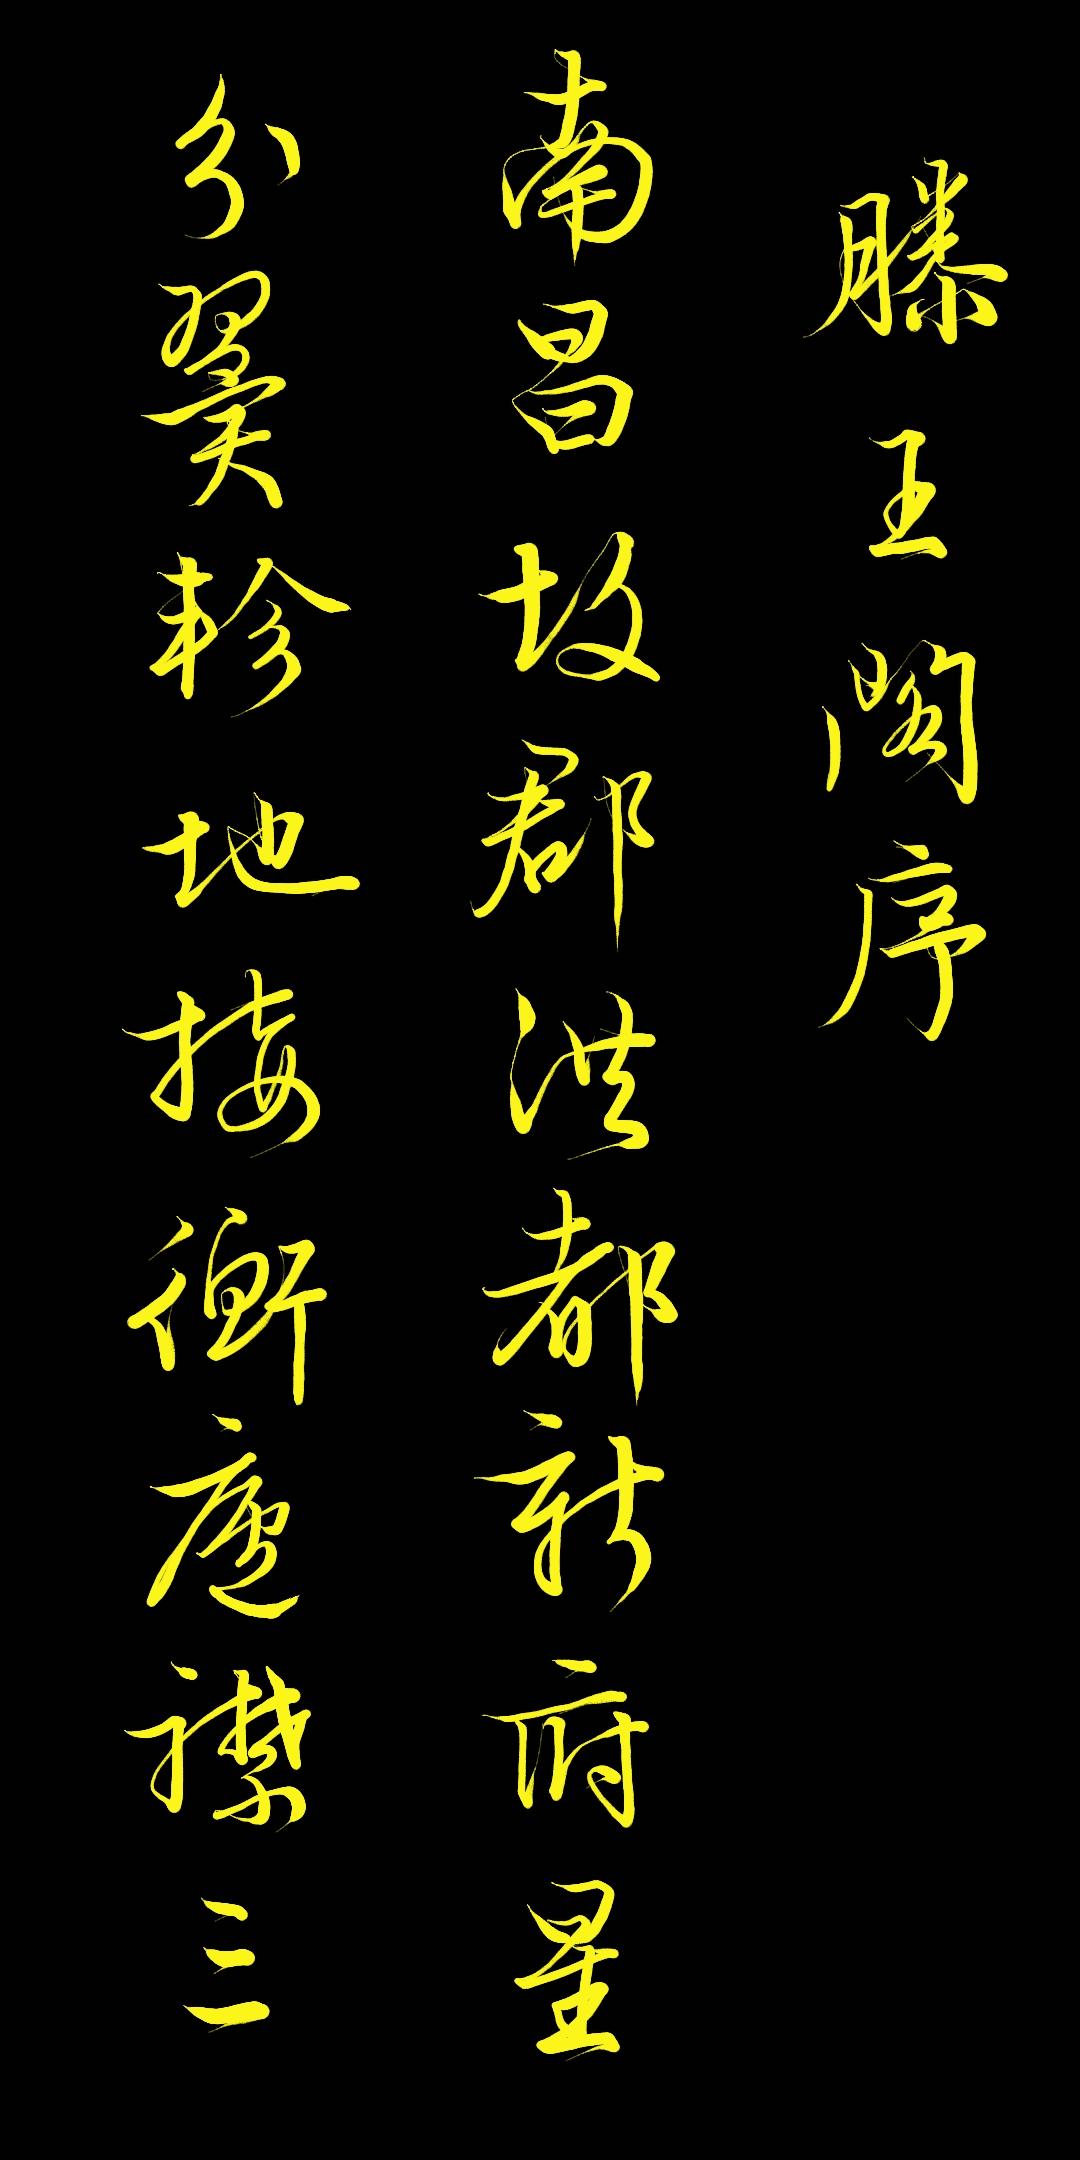 滕王阁序
南昌故郡洪都新府星
分翼轸地接衡庐襟三